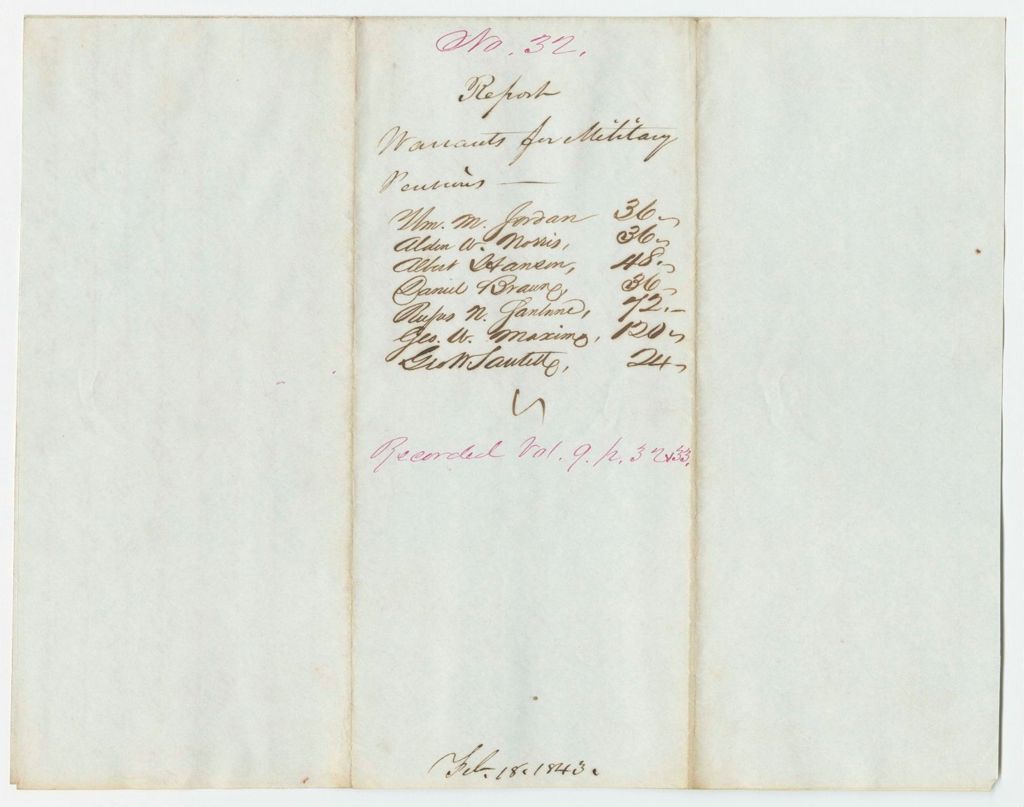 No. 32.
Report
Warrants for Military
Pensions —
Wm. M. Jordan 36.
Alden W. Norris, 36.
Albert Hanson, 48.
Daniel Brawn, 36.
Rufus N. 72.—
Geo. W. Maxim, 120
Geo W Sautell, 24
Recorded Vol. 9. p. 32 & 33.
Feb. 18. 1843.